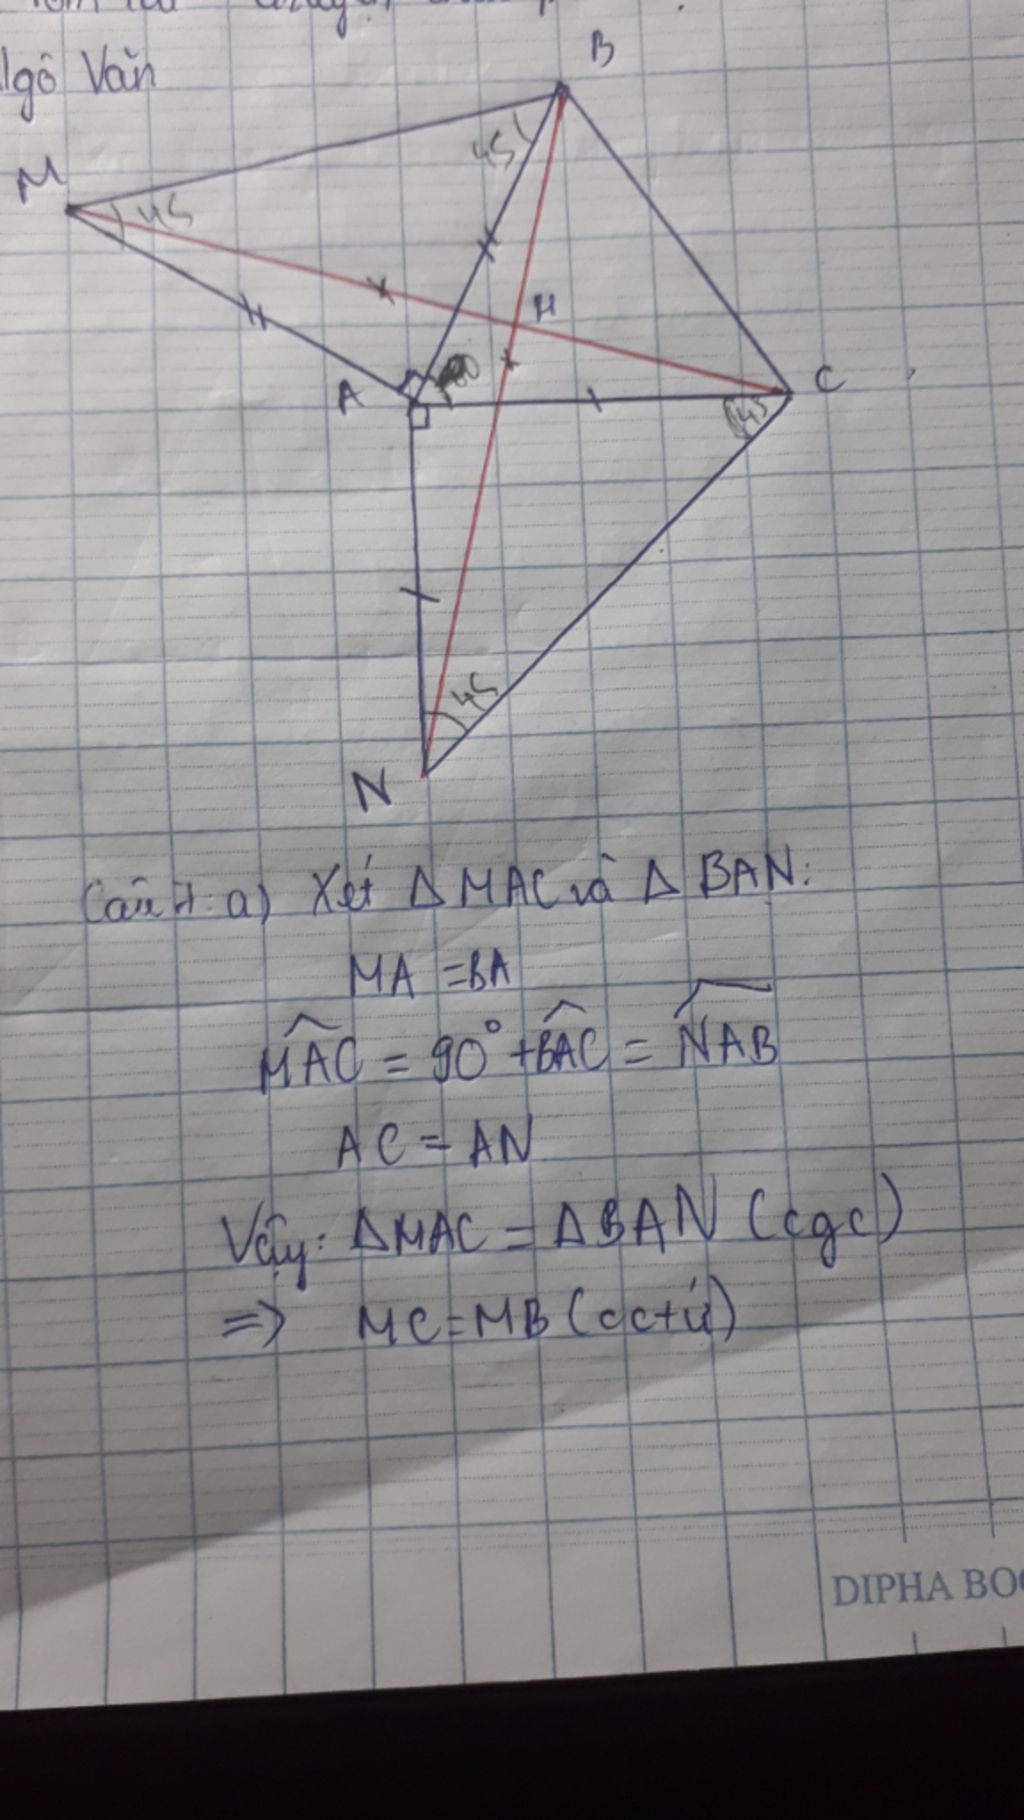 Ngô Văn
B
M
45
45
H
A
C
45
45
N
Câu 7: a) Xét Δ MAC và Δ BAN:
MA = BA
MAC = 90° + BAC = NAB
AC = AN
Vậy: ΔMAC = ΔBAN (cgc)
=> MC = MB (cctứ)
DIPHA BO